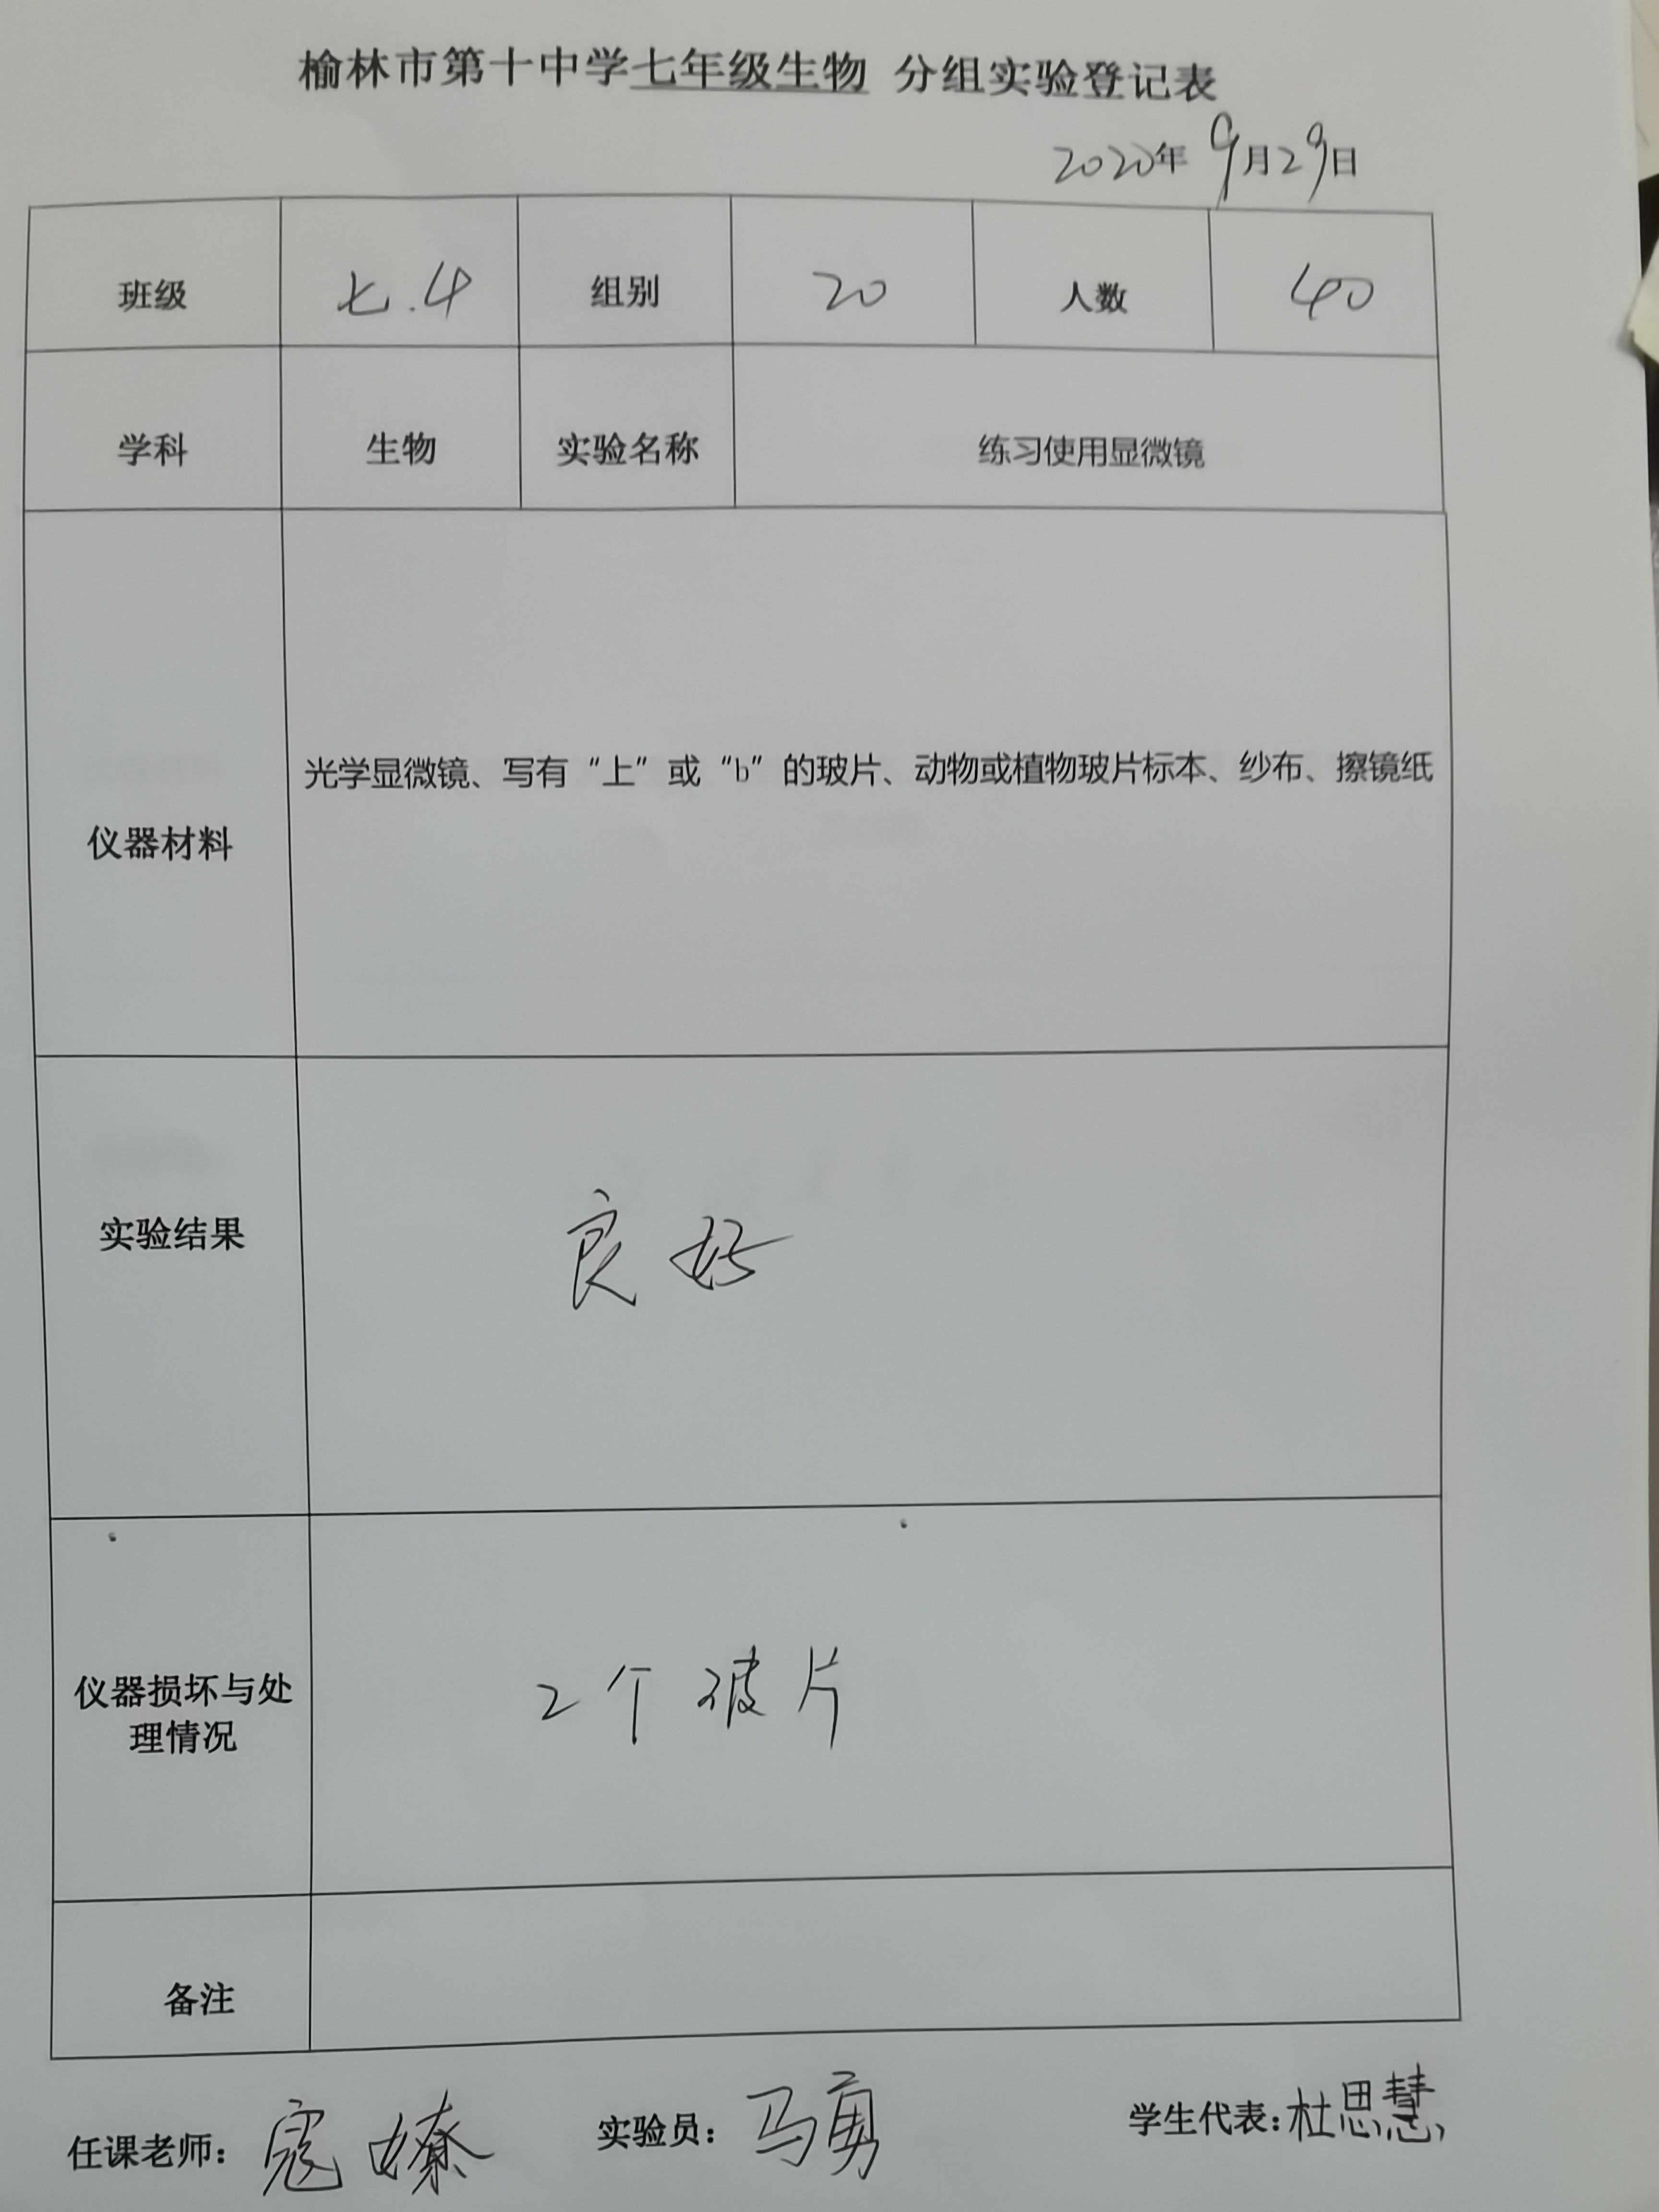 榆林市第十中学七年级生物 分组实验登记表
2020年9月29日
班级 七.4 组别 20 人数 40
学科 生物 实验名称 练习使用显微镜
仪器材料 光学显微镜、写有“上”或“b”的玻片、动物或植物玻片标本、纱布、擦镜纸
实验结果 良好
仪器损坏与处
理情况
2个玻片
备注
任课老师：寇 实验员：马勇 学生代表：杜思慧